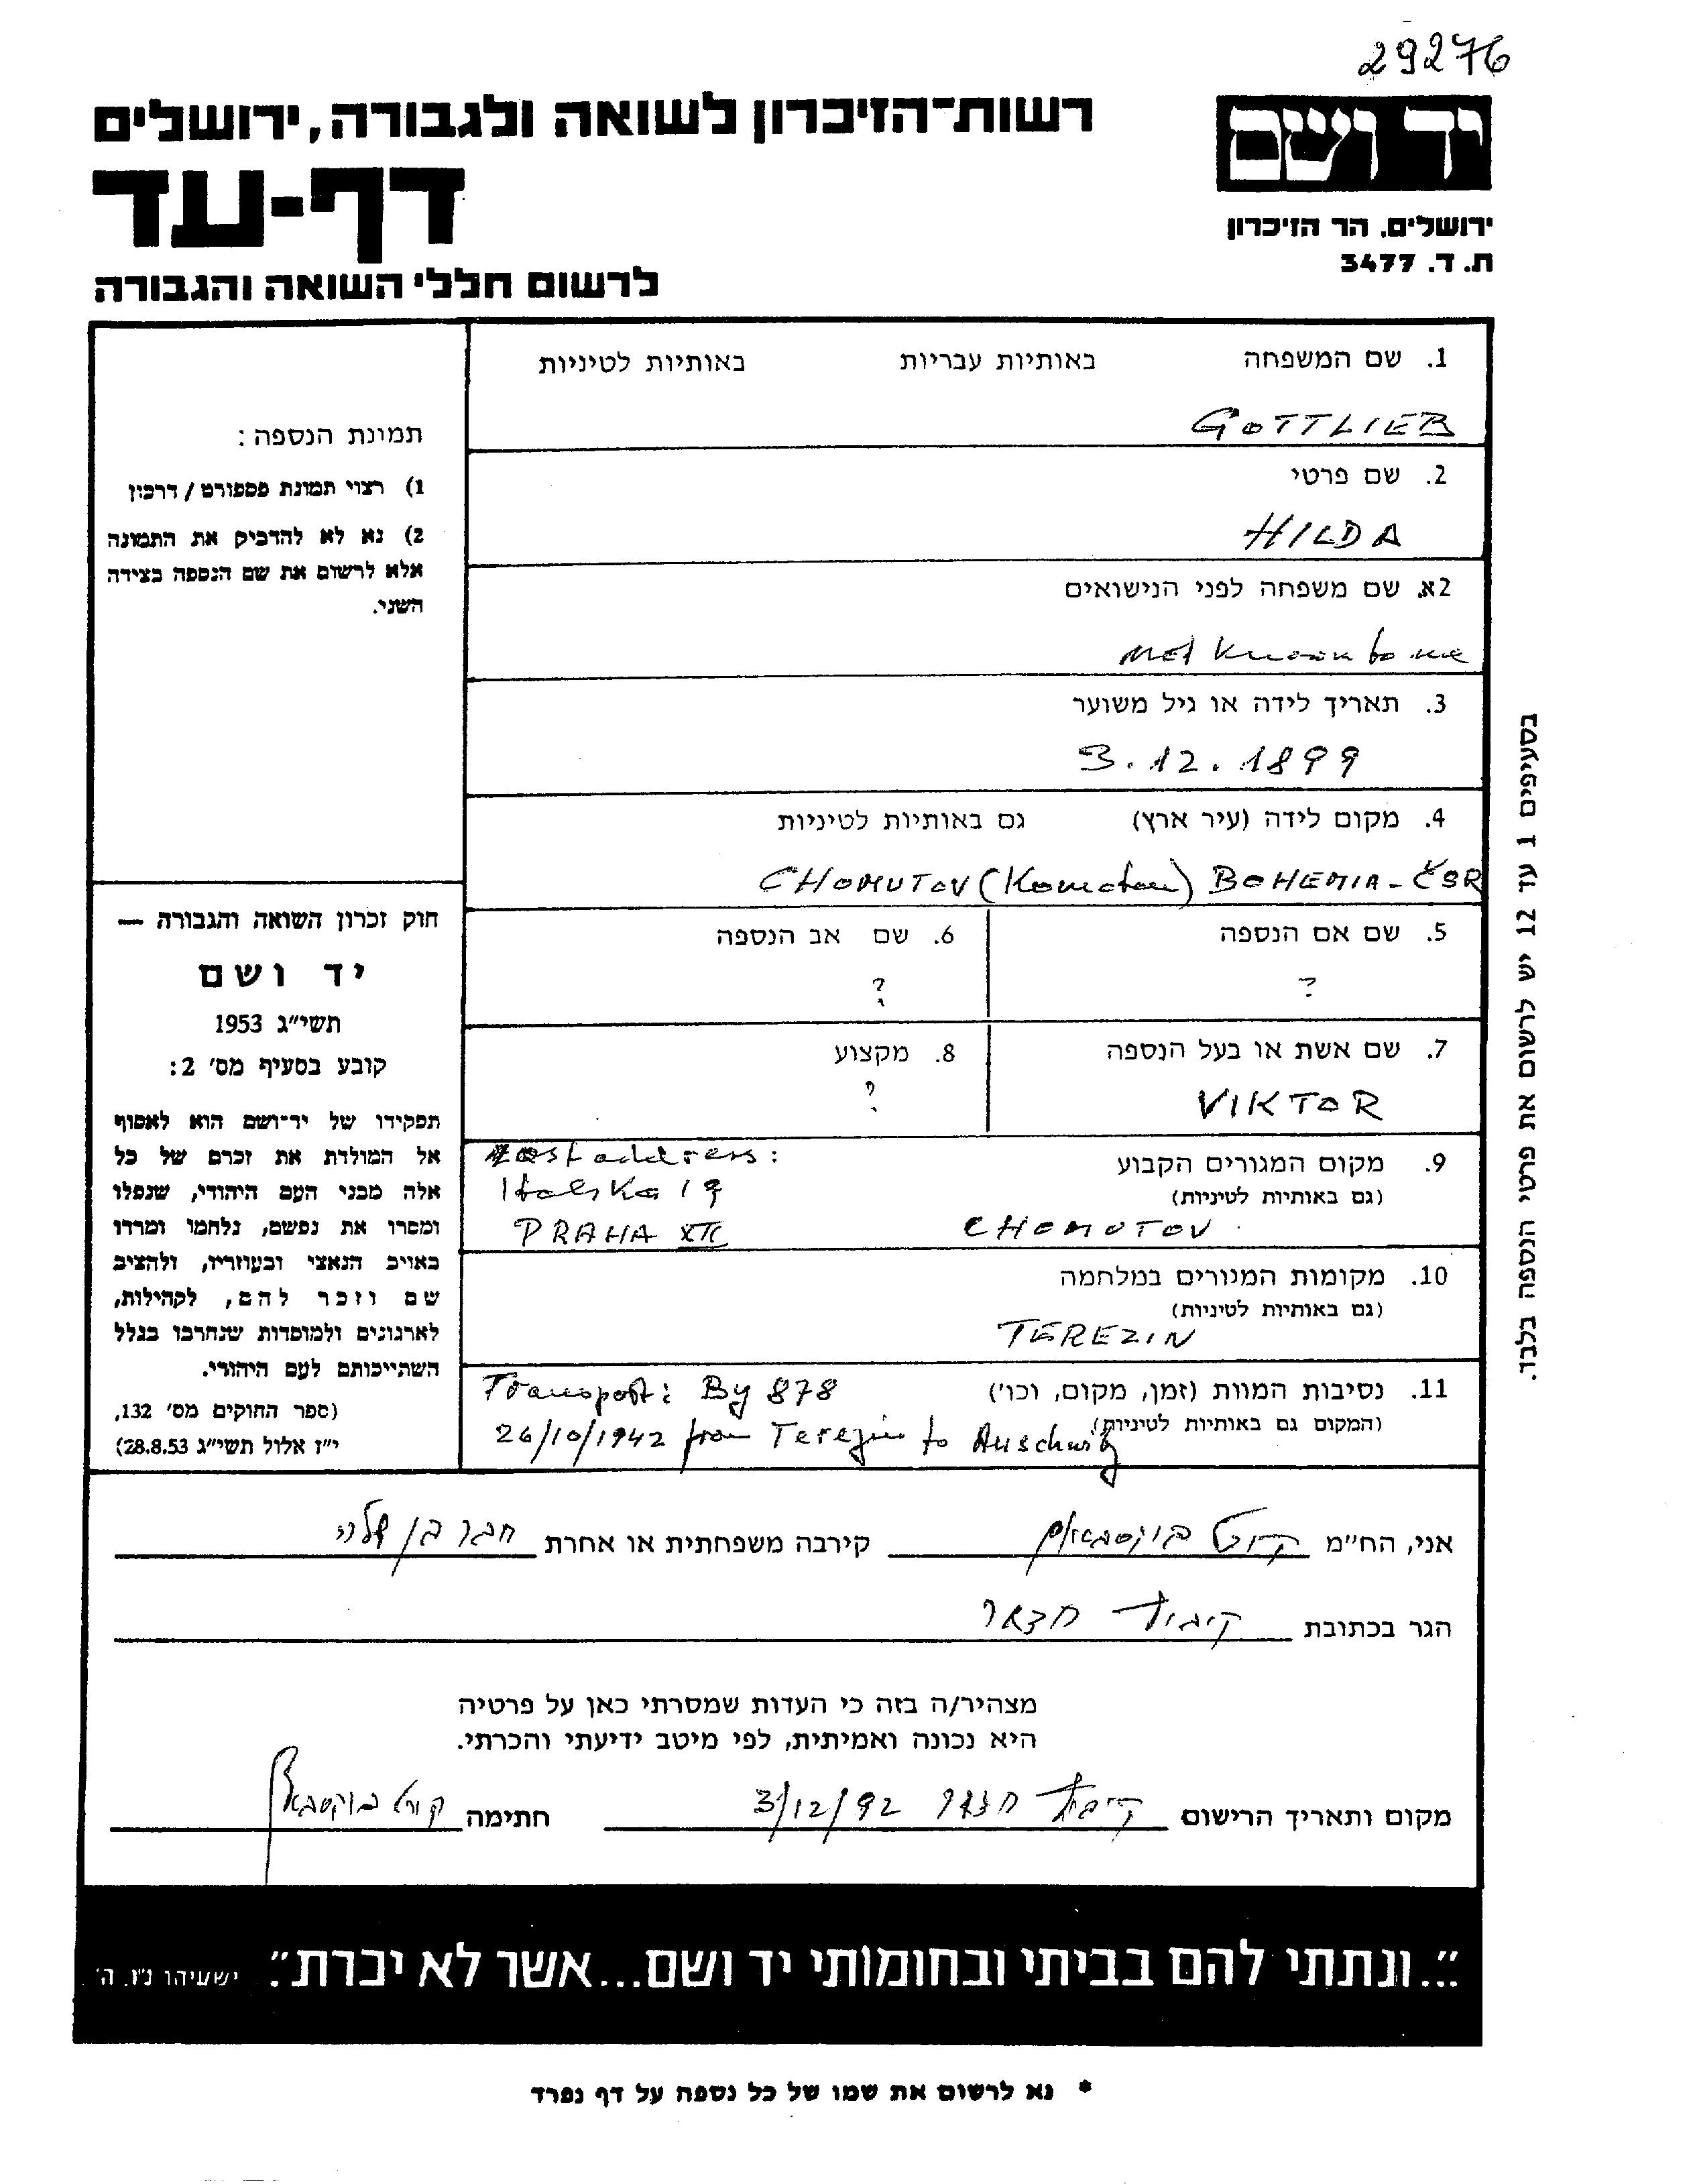 29276
יד ושם
רשות־הזיכרון לשואה ולגבורה, ירושלים
דף-עד
ירושלים, הר הזיכרון
ת. ד. 3477
לרשום חללי השואה והגבורה
1. שם המשפחה באותיות עבריות באותיות לטיניות
GOTTLIEB
2. שם פרטי
HILDA
2א. שם משפחה לפני הנישואים
not known to me
3. תאריך לידה או גיל משוער
3.12.1899
4. מקום לידה (עיר ארץ) גם באותיות לטיניות
CHOMUTOV (Komotau) BOHEMIA - ČSR
5. שם אם הנספה
?
6. שם אב הנספה
?
7. שם אשת או בעל הנספה
VIKTOR
8. מקצוע
?
9. מקום המגורים הקבוע
(גם באותיות לטיניות)
CHOMUTOV
Last address:
Italska 19
PRAHA XII
10. מקומות המגורים במלחמה
(גם באותיות לטיניות)
TEREZIN
11. נסיבות המוות (זמן, מקום, וכו')
(המקום גם באותיות לטיניות)
Transport: By 878
26/10/1942 from Terezin to Auschwitz
תמונת הנספה:
1) רצוי תמונת פספורט / דרכון
2) נא לא להדביק את התמונה
אלא לרשום את שם הנספה בצידה
השני.
חוק זכרון השואה והגבורה —
יד ושם
תשי"ג 1953
קובע בסעיף מס' 2:
תפקידו של יד־ושם הוא לאסוף
אל המולדת את זכרם של כל
אלה מבני העם היהודי, שנפלו
ומסרו את נפשם, נלחמו ומרדו
באויב הנאצי ובעוזריו, ולהציב
שם וזכר להם, לקהילות,
לארגונים ולמוסדות שנחרבו בגלל
השתייכותם לעם היהודי.
(ספר החוקים מס' 132,
י"ז אלול תשי"ג 28.8.53)
בסעיפים 1 עד 12 יש לרשום את פרטי הנספה בלבד.
אני, הח"מ קורט בוקסבאום קירבה משפחתית או אחרת חבר בן
הגר בכתובת קיבוץ חצור
מצהיר/ה בזה כי העדות שמסרתי כאן על פרטיה
היא נכונה ואמיתית, לפי מיטב ידיעתי והכרתי.
מקום ותאריך הרישום קיבוץ חצור 3/12/92 חתימה קורט בוקסבאום
"...ונתתי להם בביתי ובחומותי יד ושם...אשר לא יכרת". ישעיהו נ"ו, ה'
* נא לרשום את שמו של כל נספה על דף נפרד